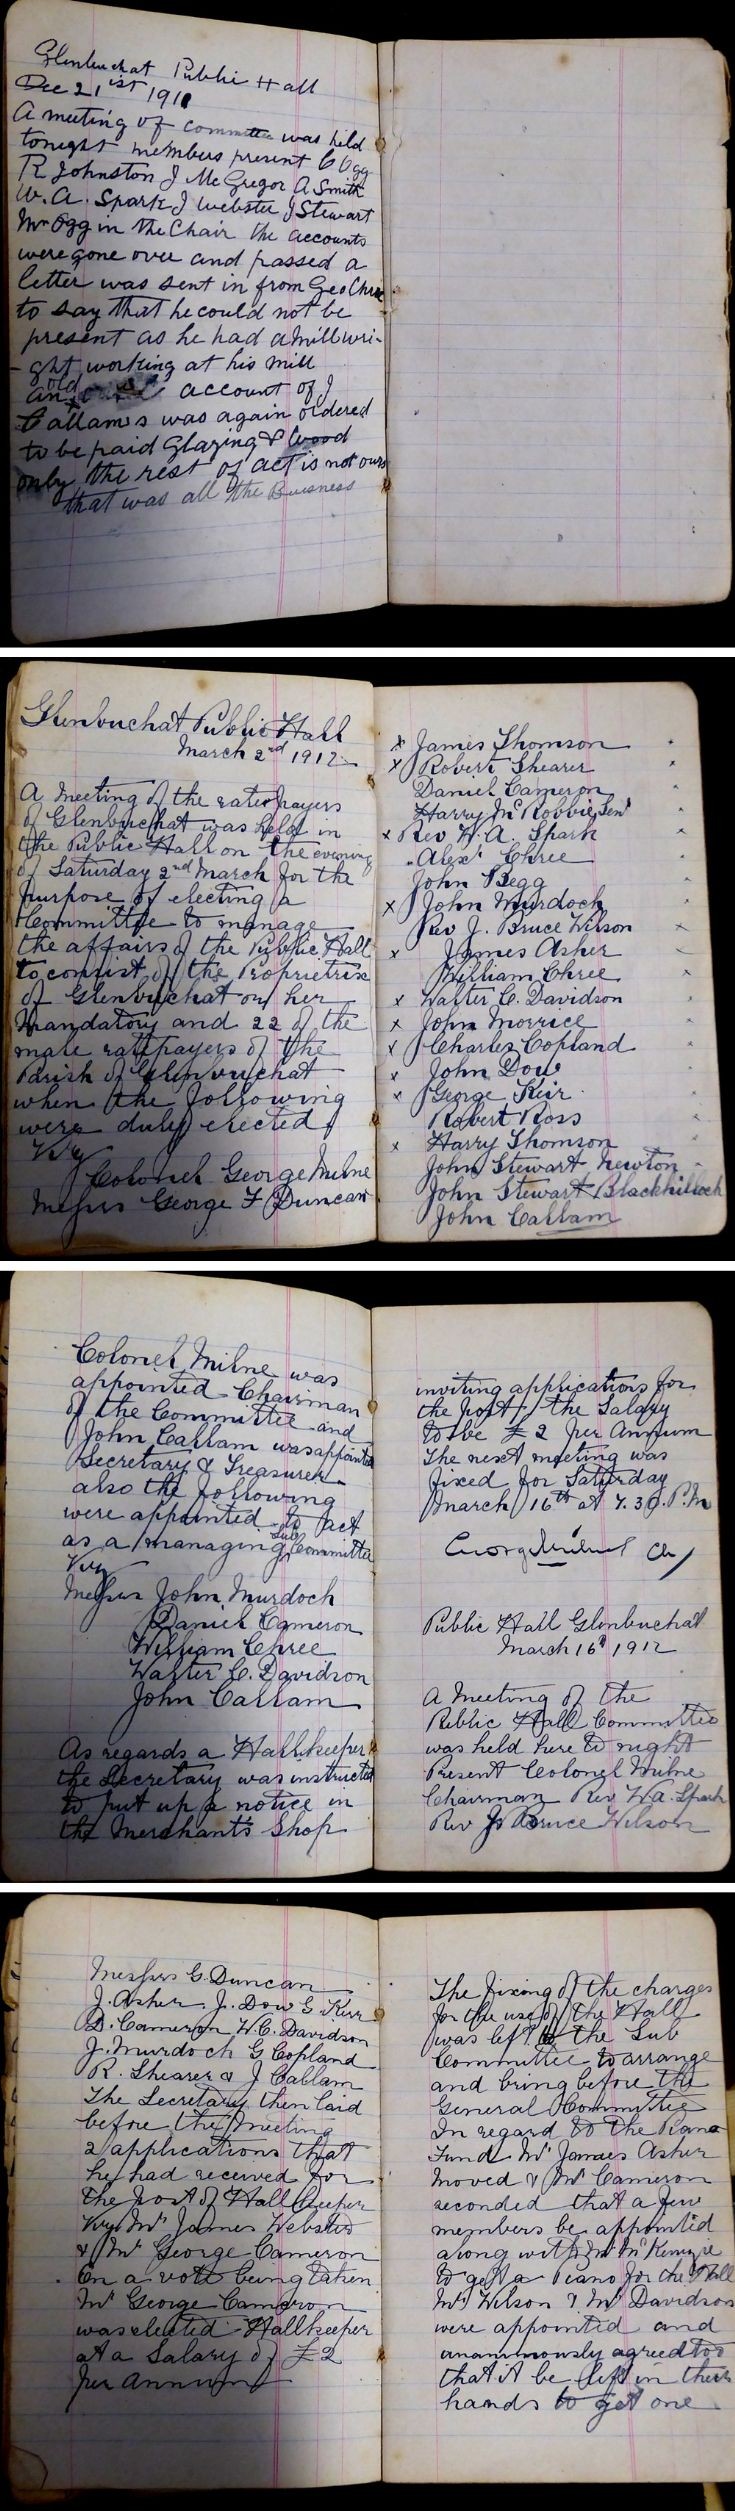 Glenbuchat Public Hall
Dec 21ist 1911
A meeting of committee was held
tonight members present G Ogg
R Johnston J McGregor A Smith
W. A. Spark J Webster J Stewart
Mr Ogg in the Chair the accounts
were gone over and passed a
letter was sent in from Geo Chree
to say that he could not be
present as he had a millwri-
- ght working at his mill
an old account of J
Callams was again ordered
to be paid Glazing & Wood
only the rest of act is not ours
that was all the Buisness
Glenbuchat Public Hall
March 2nd 1912
A Meeting of the ratepayers
of Glenbuchat was held in
the Public Hall on the evening
of Saturday 2nd March for the
purpose of electing a
Committee to manage
the affairs of the Public Hall
to consist of the Proprietrix
of Glenbuchat or her
Mandatory and 22 of the
male ratepayers of the
Parish of Glenbuchat
when the following
were duly elected
Viz
Colonel George Milne
Messrs George F Duncan
x James Thomson
x Robert Shearer
Daniel Cameron
Harry McRobbie Senr
x Rev W. A. Spark
Alexr Chree
John Begg
x John Murdoch
Rev J. Bruce Wilson
x James Asher
William Chree
x Walter C. Davidson
x John Morrice
x Charles Copland
x John Dow
x George Keir
Robert Ross
x Harry Thomson
John Stewart Newton
John Stewart Blackhillock
John Callam
Colonel Milne was
appointed Chairman
of the Committee and
John Callam was appointed
Secretary & Treasurer
also the following
were appointed to act
as a managing Sub Committee
Viz
Messrs John Murdoch
Daniel Cameron
William Chree
Walter C. Davidson
John Callam
As regards a Hallkeeper
the Secretary was instructed
to put up a notice in
the Merchant's Shop
inviting applications for
the post, the Salary
to be £2 per Annum
The next meeting was
fixed for Saturday
March 16th at 7.30. P.M
George Milne Ch/
Public Hall Glenbuchat
March 16th 1912
A Meeting of the
Public Hall Committee
was held here to night
Present Colonel Milne
Chairman Rev W.A. Spark
Rev J. Bruce Wilson
Messrs G. Duncan
J. Asher J. Dow G. Keir
D. Cameron W. C. Davidson
J. Murdoch G Copland
R. Shearer & J Callam
The Secretary then laid
before the Meeting
2 applications that
he had received for
the post of Hall Keeper
Viz Mr James Webster
& Mr George Cameron
On a vote being taken
Mr George Cameron
was elected Hallkeeper
at a Salary of £2
per annum
The fixing of the charges
for the use of the Hall
was left to the Sub
Committee to arrange
and bring before the
General Committee
In regard to the Piano
Fund Mr James Asher
moved & Mr Cameron
seconded that a few
members be appointed
along with Mr McKenzie
to get a Piano for the Hall
Mr Wilson & Mr Davidson
were appointed and
unanimously agreed too
that it be left in their
hands to get one